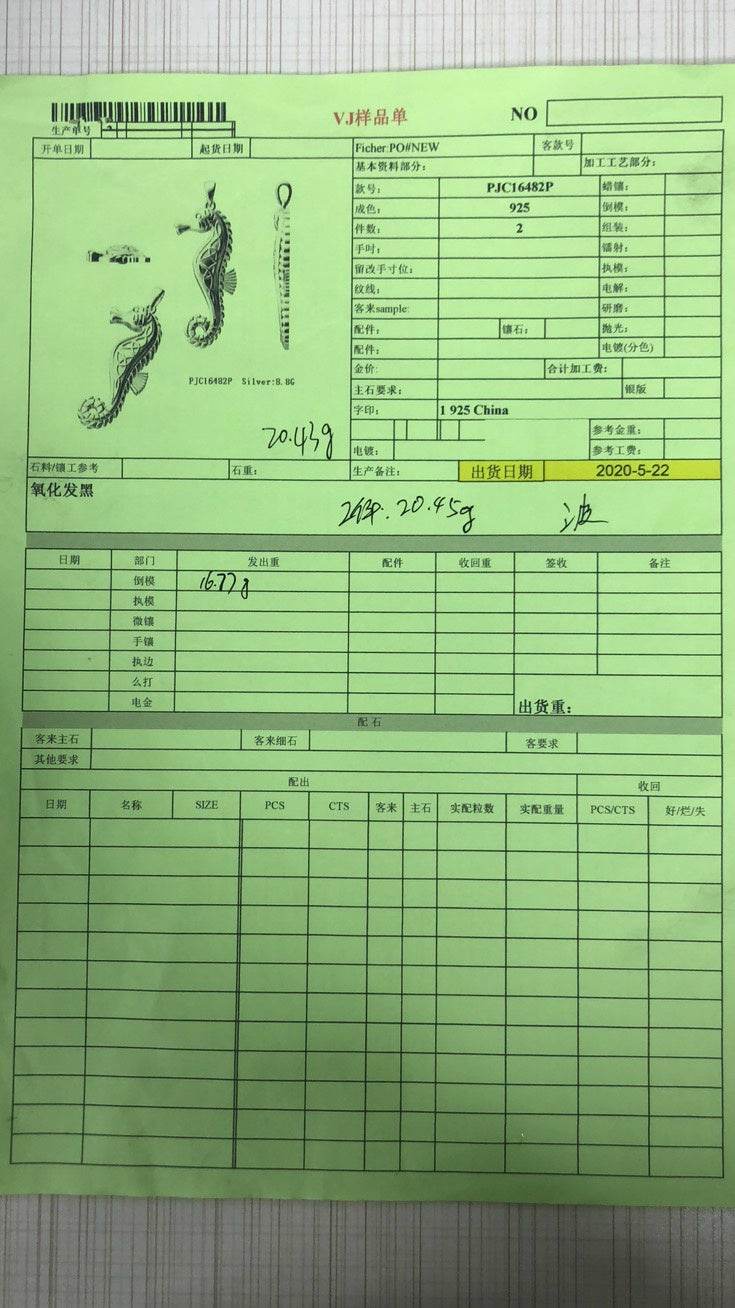 VJ样品单 NO
生产单号
开单日期 起货日期 Ficher:PO#NEW 客款号
基本资料部分: 加工工艺部分:
款号: PJC16482P 蜡镶:
成色: 925 倒模:
件数: 2 组装:
手吋: 镭射:
留改手寸位: 执模:
纹线: 电解:
客来sample: 研磨:
配件: 镶石: 抛光:
配件: 电镀(分色)
金价: 合计加工费:
主石要求: 银版
字印: 1 925 China
PJC16482P Silver:8.8G
20.43g
参考金重:
电镀: 参考工费:
石料/镶工参考 石重: 生产备注: 出货日期 2020-5-22
氧化发黑
2件. 20.45g 波
日期 部门 发出重 配件 收回重 签收 备注
倒模 16.77g
执模
微镶
手镶
执边
么打
电金 出货重:
配石
客来主石 客来细石 客要求
其他要求
配出 收回
日期 名称 SIZE PCS CTS 客来 主石 实配粒数 实配重量 PCS/CTS 好/烂/失